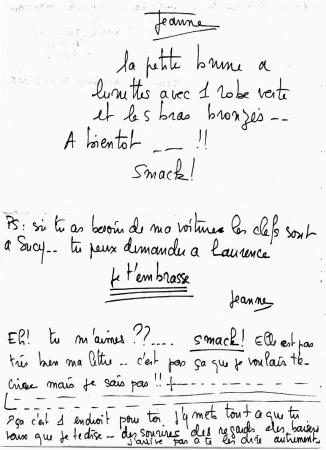 Jeanne
la petite brune a
lunettes avec 1 robe verte
et les bras bronzés --
A bientot __ __ !!
Smack!
PS: si tu as besoin de ma voiture les clefs sont
a Sucy-- tu peux demander a Laurence
Je t'embrasse
Jeanne
Eh! tu m'aimes ??.... smack! Elle est pas
très bien ma lettre -- c'est pas ça que je voulais te
mais je sais pas !!
ça c'est 1 endroit pour toi. J'y mets tout ce que tu
veux que je te dise -- des sourires des regards des baisers
J'arrive pas à te les dire autrement